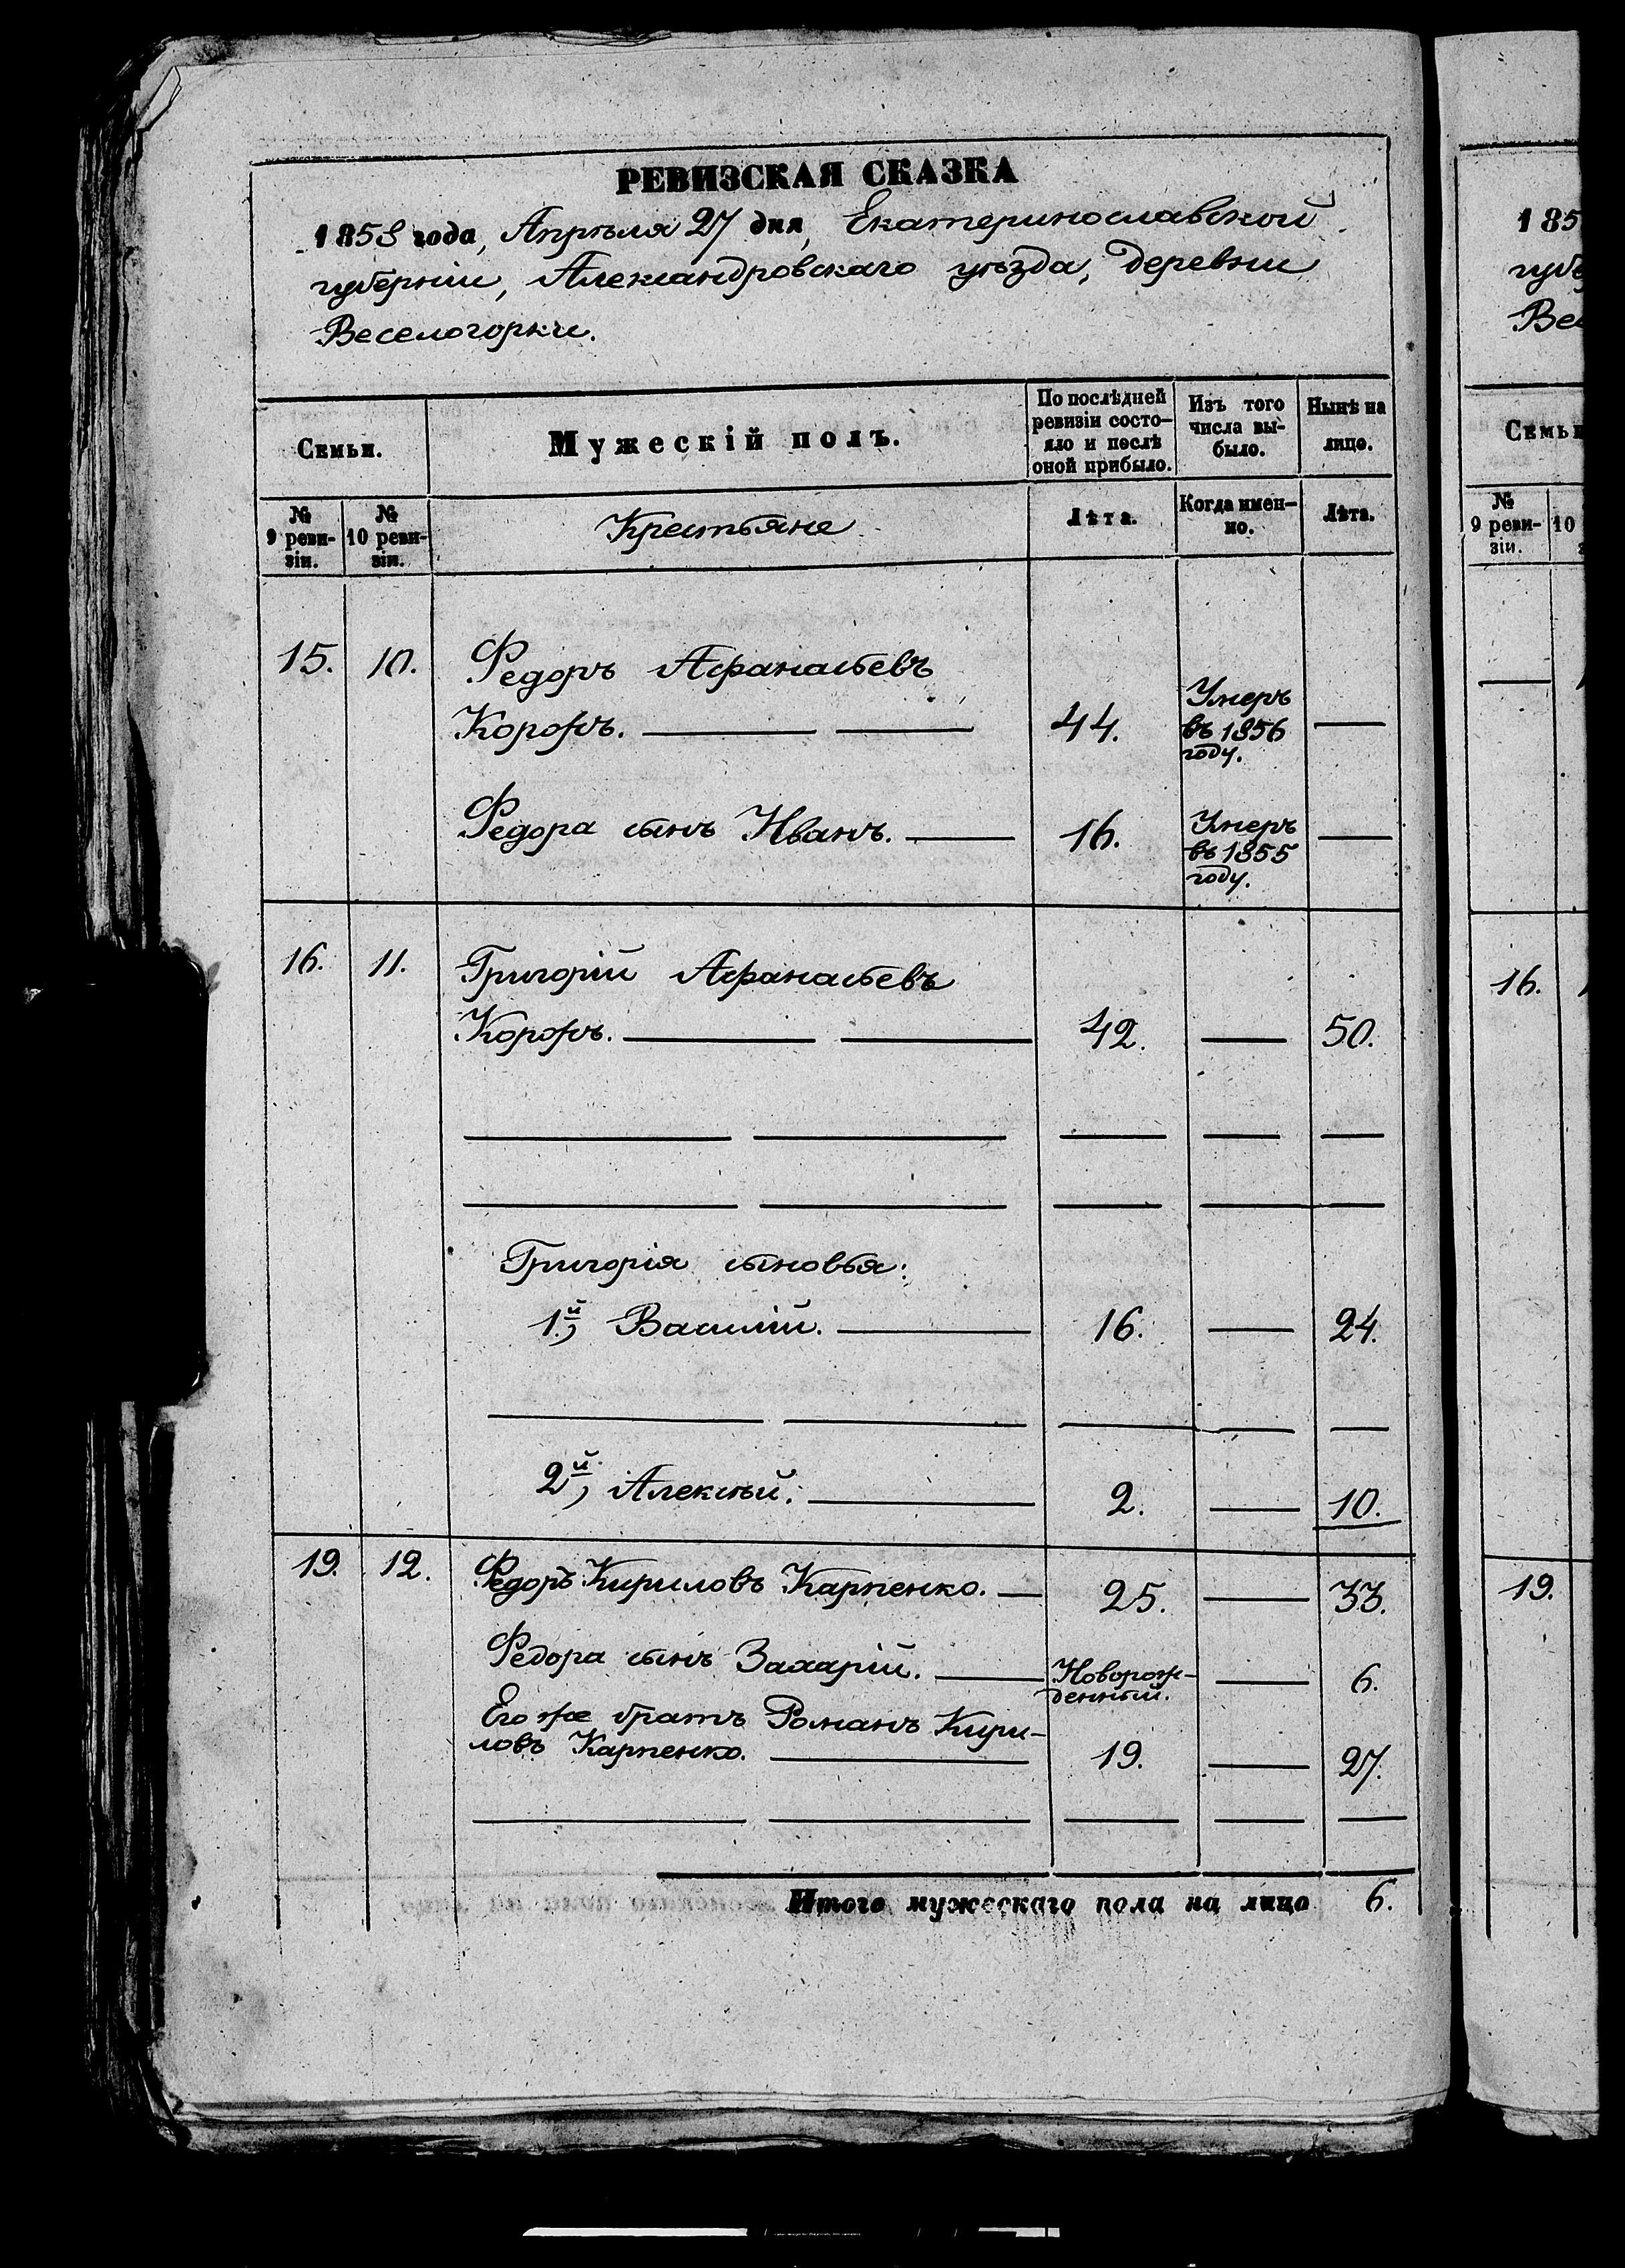 РЕВИЗСКАЯ СКАЗКА
1858 года, Апрѣля 27 дня, Екатеринославской
губерніи, Александровскаго уѣзда, деревни
Веселогорки.
Семьи.
Мужескій полъ.
По послѣдней
ревизіи состо-
яло и послѣ
оной прибыло.
Изъ того
числа вы-
было.
Нынѣ на
лицо.
№
9 реви-
зіи.
№
10 реви-
зіи.
Крестьяне
Лѣта.
Когда имен-
но.
Лѣта.
15. 10. Федоръ Афанасьевъ
Коржъ. 44. Умеръ
въ 1856
году.
Федора сынъ Иванъ. 16. Умеръ
въ 1855
году.
16. 11. Григорій Афанасьевъ
42. 50.
Григорія сыновья:
1й, Василій. 16. 24.
2й, Алексѣй. 2. 10.
19. 12. Федоръ Кириловъ Карпенко. 25. 33.
Федора сынъ Захарій. Новорож-
денный. 6.
Его же братъ Романъ Кири-
ловъ Карпенко. 19. 27.
Итого мужескаго пола на лицо 6.
185
губе
Ве
Семьи
№
9 реви-
зіи.
10
16.
19.